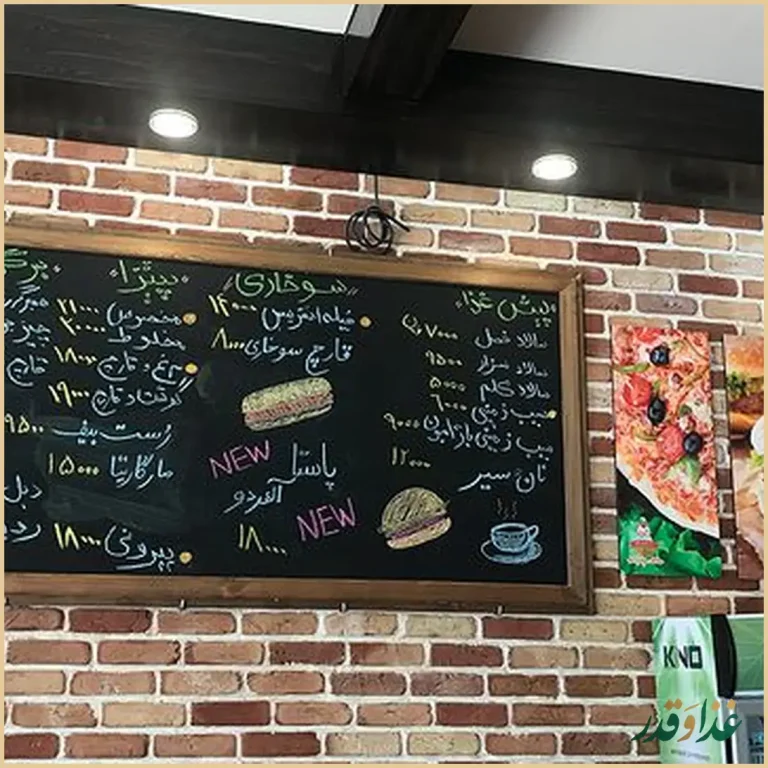 پیش غذا
سالاد فصل ۷۰۰۰
سالاد سزار ۹۵۰۰
سالاد کلم ۵۰۰۰
سیب زمینی ۶۰۰۰
سیب زمینی با ژامبون ۹۰۰۰
نان سیر ۱۲۰۰۰
سوخاری
فیله استریپس ۱۴۰۰۰
قارچ سوخاری ۸۰۰۰
NEW
پاستا
آلفردو
NEW
۱۸۰۰۰
پیتزا
مخصوص ۲۱۰۰۰
مخلوط ۲۰۰۰۰
مرغ و قارچ ۱۸۰۰۰
گوشت و قارچ ۱۹۰۰۰
رست بیف
مارگاریتا ۱۵۰۰۰
پپرونی ۱۸۰۰۰
دبل
KINO
غذا و قدر